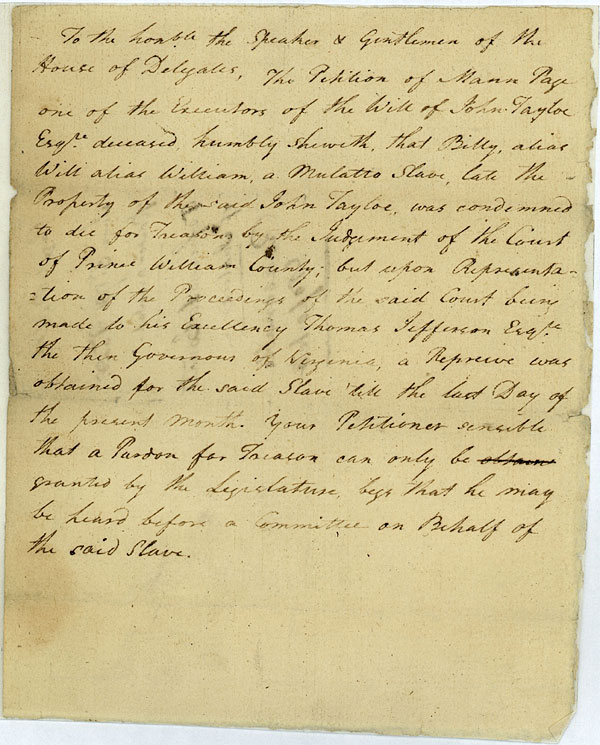 To the honble the Speaker & Gentlemen of the
House of Delegates, The Petition of Mann Page
one of the Executors of the Will of John Tayloe
Esqre deceased, humbly sheweth, that Billy, alias
Will alias William, a Mulatto Slave, late the
Property of the said John Tayloe, was condemned
to die for Treason by the Judgement of the Court
of Prince William County; but upon Representa-
=tion of the Proceedings of the said Court being
made to his Excellency Thomas Jefferson Esqre
the then Governour of Virginia, a Repreive was
obtained for the said Slave till the last Day of
the present Month. Your Petitioner sensible
that a Pardon for Treason can only be obtain
granted by the Legislature, begs that he may
be heard before a Committee on Behalf of
the said Slave.